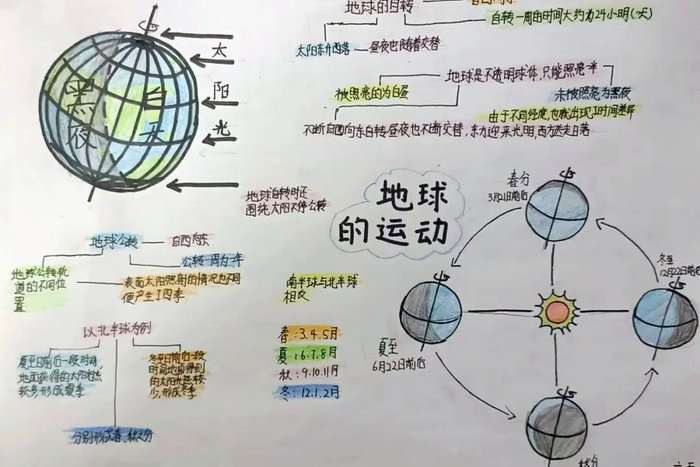 地球的自转
自转一周的时间大约为24小时(一天)
太阳东升西落
昼夜也随着交替
太
阳
光
黑
夜
白
天
地球是不透明球体,只能照亮一半
被照亮的为白昼
未被照亮为黑夜
由于不同经度,也就出现了时间差异
不断自西向东自转昼夜也不断交替,东方迎来光明,西方送走日落
地球自转时还
围绕太阳不停公转
地球
的运动
春分
3月21日前后
冬至
12月22日前后
夏至
6月22日前后
秋分
地球公转
自西向东
公转一周为一年
地球公转轨
道的不同位
置
表面太阳照射的情况也不同
便产生了四季
南半球与北半球
相反
以北半球为例
夏至日前后一段时间,
地面获得的太阳光热
较多形成夏季
冬至日前后一段
时间地面得到
的太阳光热较
少,形成冬季
春:3.4.5月
夏:6.7.8月
秋:9.10.11月
冬:12.1.2月